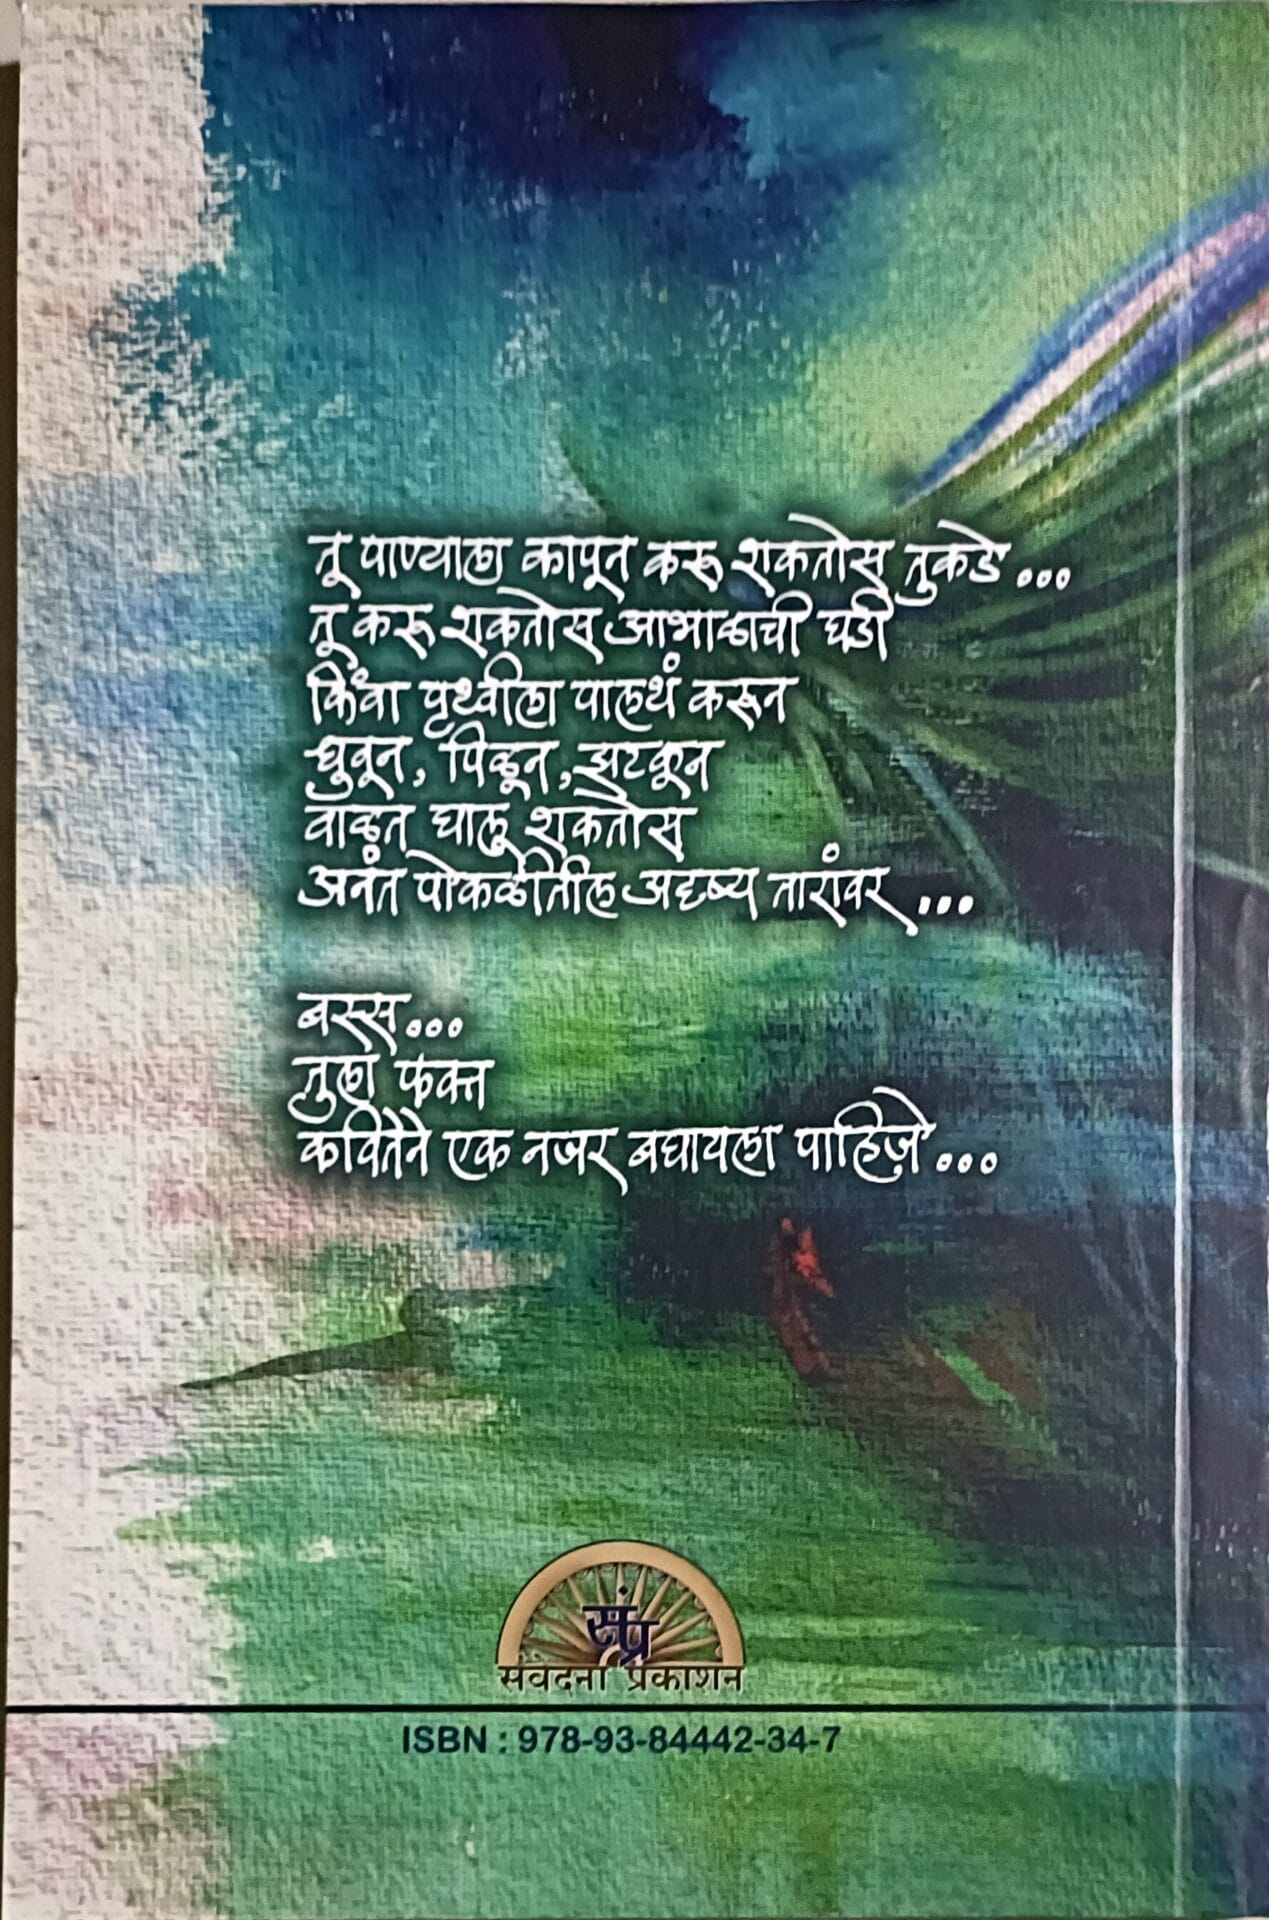 तू पाण्याला कापून करू शकतोस तुकडे ...
तू करू शकतोस आभाळाची घडी
किंवा पृथ्वीला पालथं करून
धुवून, पिळून, झटकून
वाळत घालू शकतोस
अनंत पोकळीतील अदृष्य तारांवर ...
बस्स...
तुला फक्त
कवितेने एक नजर बघायला पाहिजे ...
संप्र
संवेदना प्रकाशन
ISBN : 978-93-84442-34-7